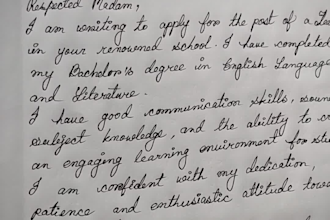 Respected Madam,
I am writing to apply for the post of a
in your renowned school. I have completed
my Bachelor's degree in English Language
and Literature.
I have good communication skills,
subject knowledge, and the ability to
an engaging learning environment for
I am confident with my dedication,
patience and enthusiastic attitude